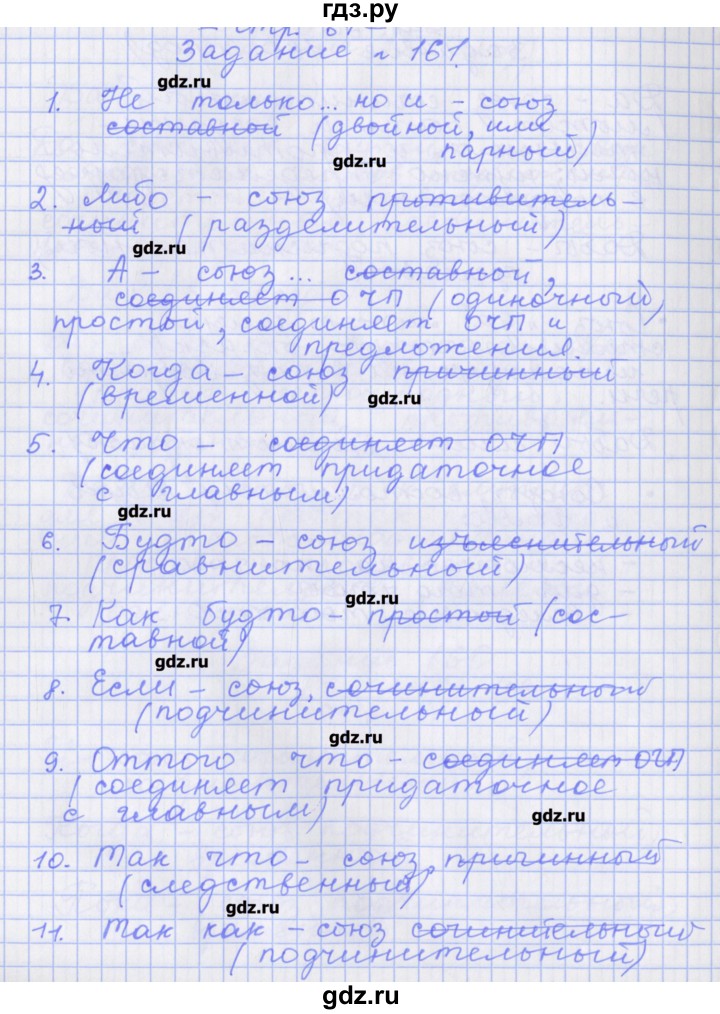 гдз.ру
– стр. 61 –
Задание № 161.
gdz.ru
1. Не только... но и – союз
составной (двойной, или
парный)
gdz.ru
2. Либо – союз противитель-
ный (разделительный)
gdz.ru
3. А – союз ... составной,
соединяет ОЧП (одиночный,
простой, соединяет ОЧП и
предложения.
4. Когда – союз причинный
(временной)
gdz.ru
5. Что – соединяет ОЧП
(соединяет придаточное
с главным)
gdz.ru
6. Будто – союз изъяснительный
(сравнительный)
gdz.ru
7. Как будто – простой (сос-
тавной)
gdz.ru
8. Если – союз, сочинительный
(подчинительный)
gdz.ru
9. Оттого что – соединяет ОЧП
(соединяет придаточное
с главным)
gdz.ru
10. Так что – союз, причинный
(следственный)
gdz.ru
11. Так как – союз сочинительный
(подчинительный)
gdz.ru